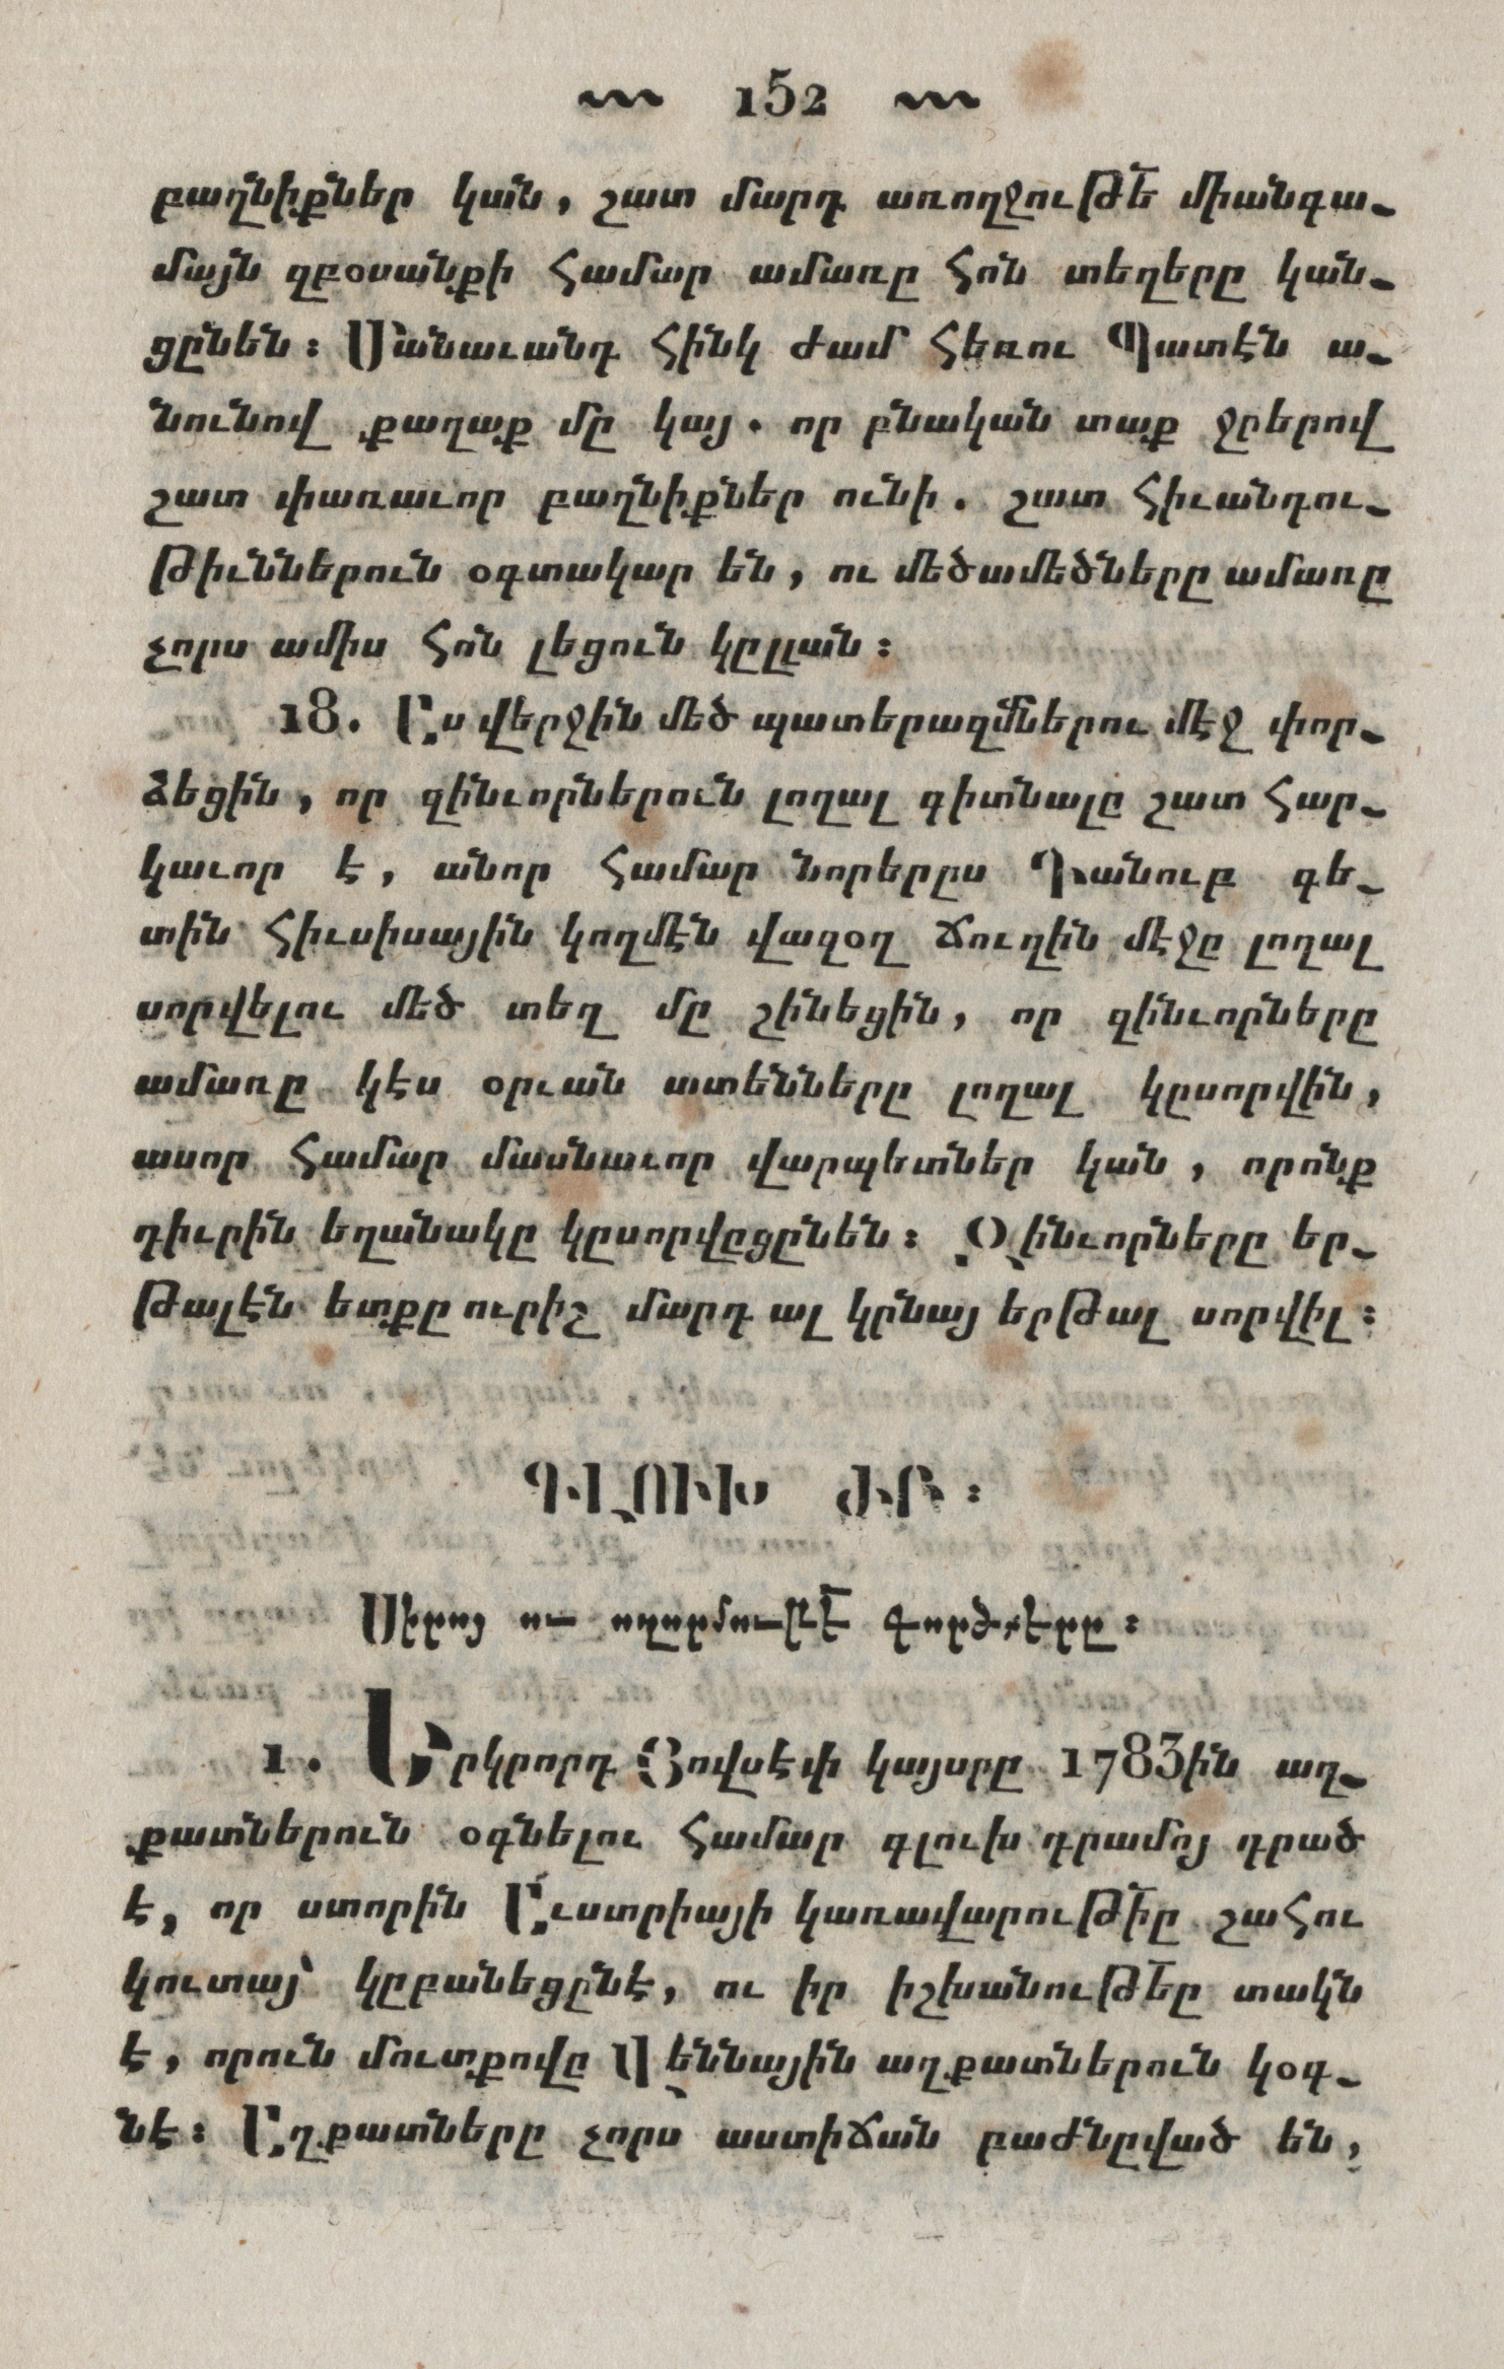 152
բաղնիքներ կան, շատ մարդ առողջուԹե միանգա֊
մայն զբօսանքի համար ամառը հոն տեղերը կան֊
ցընեն։ Մանաւանդ հինկ ժամ հեռու Պատէն ա֊
նունով քաղաք մը կայ. որ բնական տաք ջըերով
շատ փառաւոր բաղնիքներ ունի. շատ հիւանդու֊
թիւններուն օգտակար են, ու մեծամեծները ամառը
չորս ամիս հոն լեցուն կըլլան։
18. Ըս վերջին մեծ պատերազմներու մէջ փոր֊
ձեցին, որ զինւորներուն լողալ գիտնալը շատ հար֊
կաւոր է, անոր համար նորերըս Դանուբ գե֊
տին հիւսիսային կողմէն վազօղ ճուղին մէջը լողալ
սորվելու մեծ տեղ մը շինեցին, որ զինւորները
ամառը կէս օրւան ատենները լողալ կըսորվին,
ասոր համար մասնաւոր վարպետներ կան, որոնք
դիւրին եղանակը կըսորվըցընեն։ Զինւորները եր֊
թալէն ետքը ուրիշ մարդ ալ կրնայ երթալ սորվիլ։
ԳԼՈՒԽ ԺԲ։
Սիրոյ ու ողորմուԹե գործքերը։
1. Երկրորդ Յովսէփ կայսրը 1783ին աղ֊
քատներուն օգնելու համար գլուխ դրամոյ դրած
է, որ ստորին Աւստրիայի կառավարուԹիը շահու
կուտայ՝ կըբանեցընէ, ու իր իշխանուԹեը տակն
է, որուն մուտքովը Վէննային աղքատներուն կօգ֊
նէ։ Աղքատները չորս աստիճան բաժնըված են,